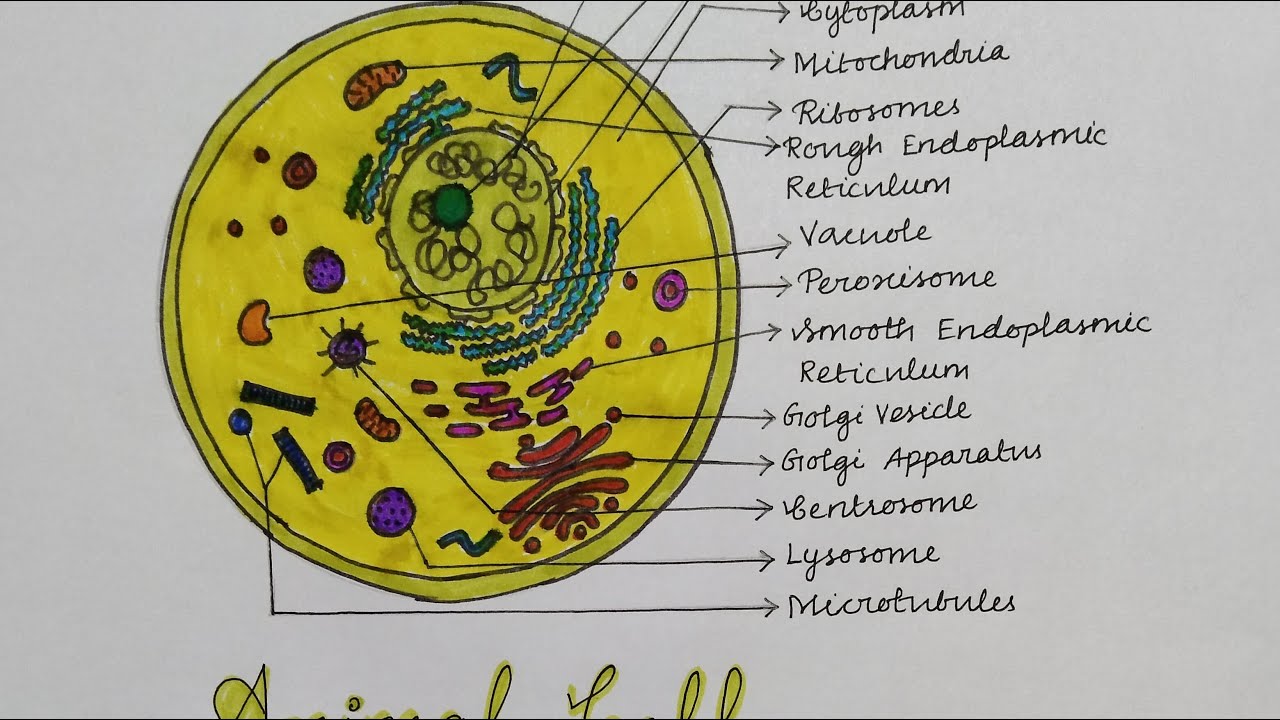 Cytoplasm
Mitochondria
Ribosomes
Rough Endoplasmic
Reticulum
Vacuole
Peroxisome
Smooth Endoplasmic
Reticulum
Golgi Vesicle
Golgi Apparatus
Centrosome
Lysosome
Microtubules
Animal Cell